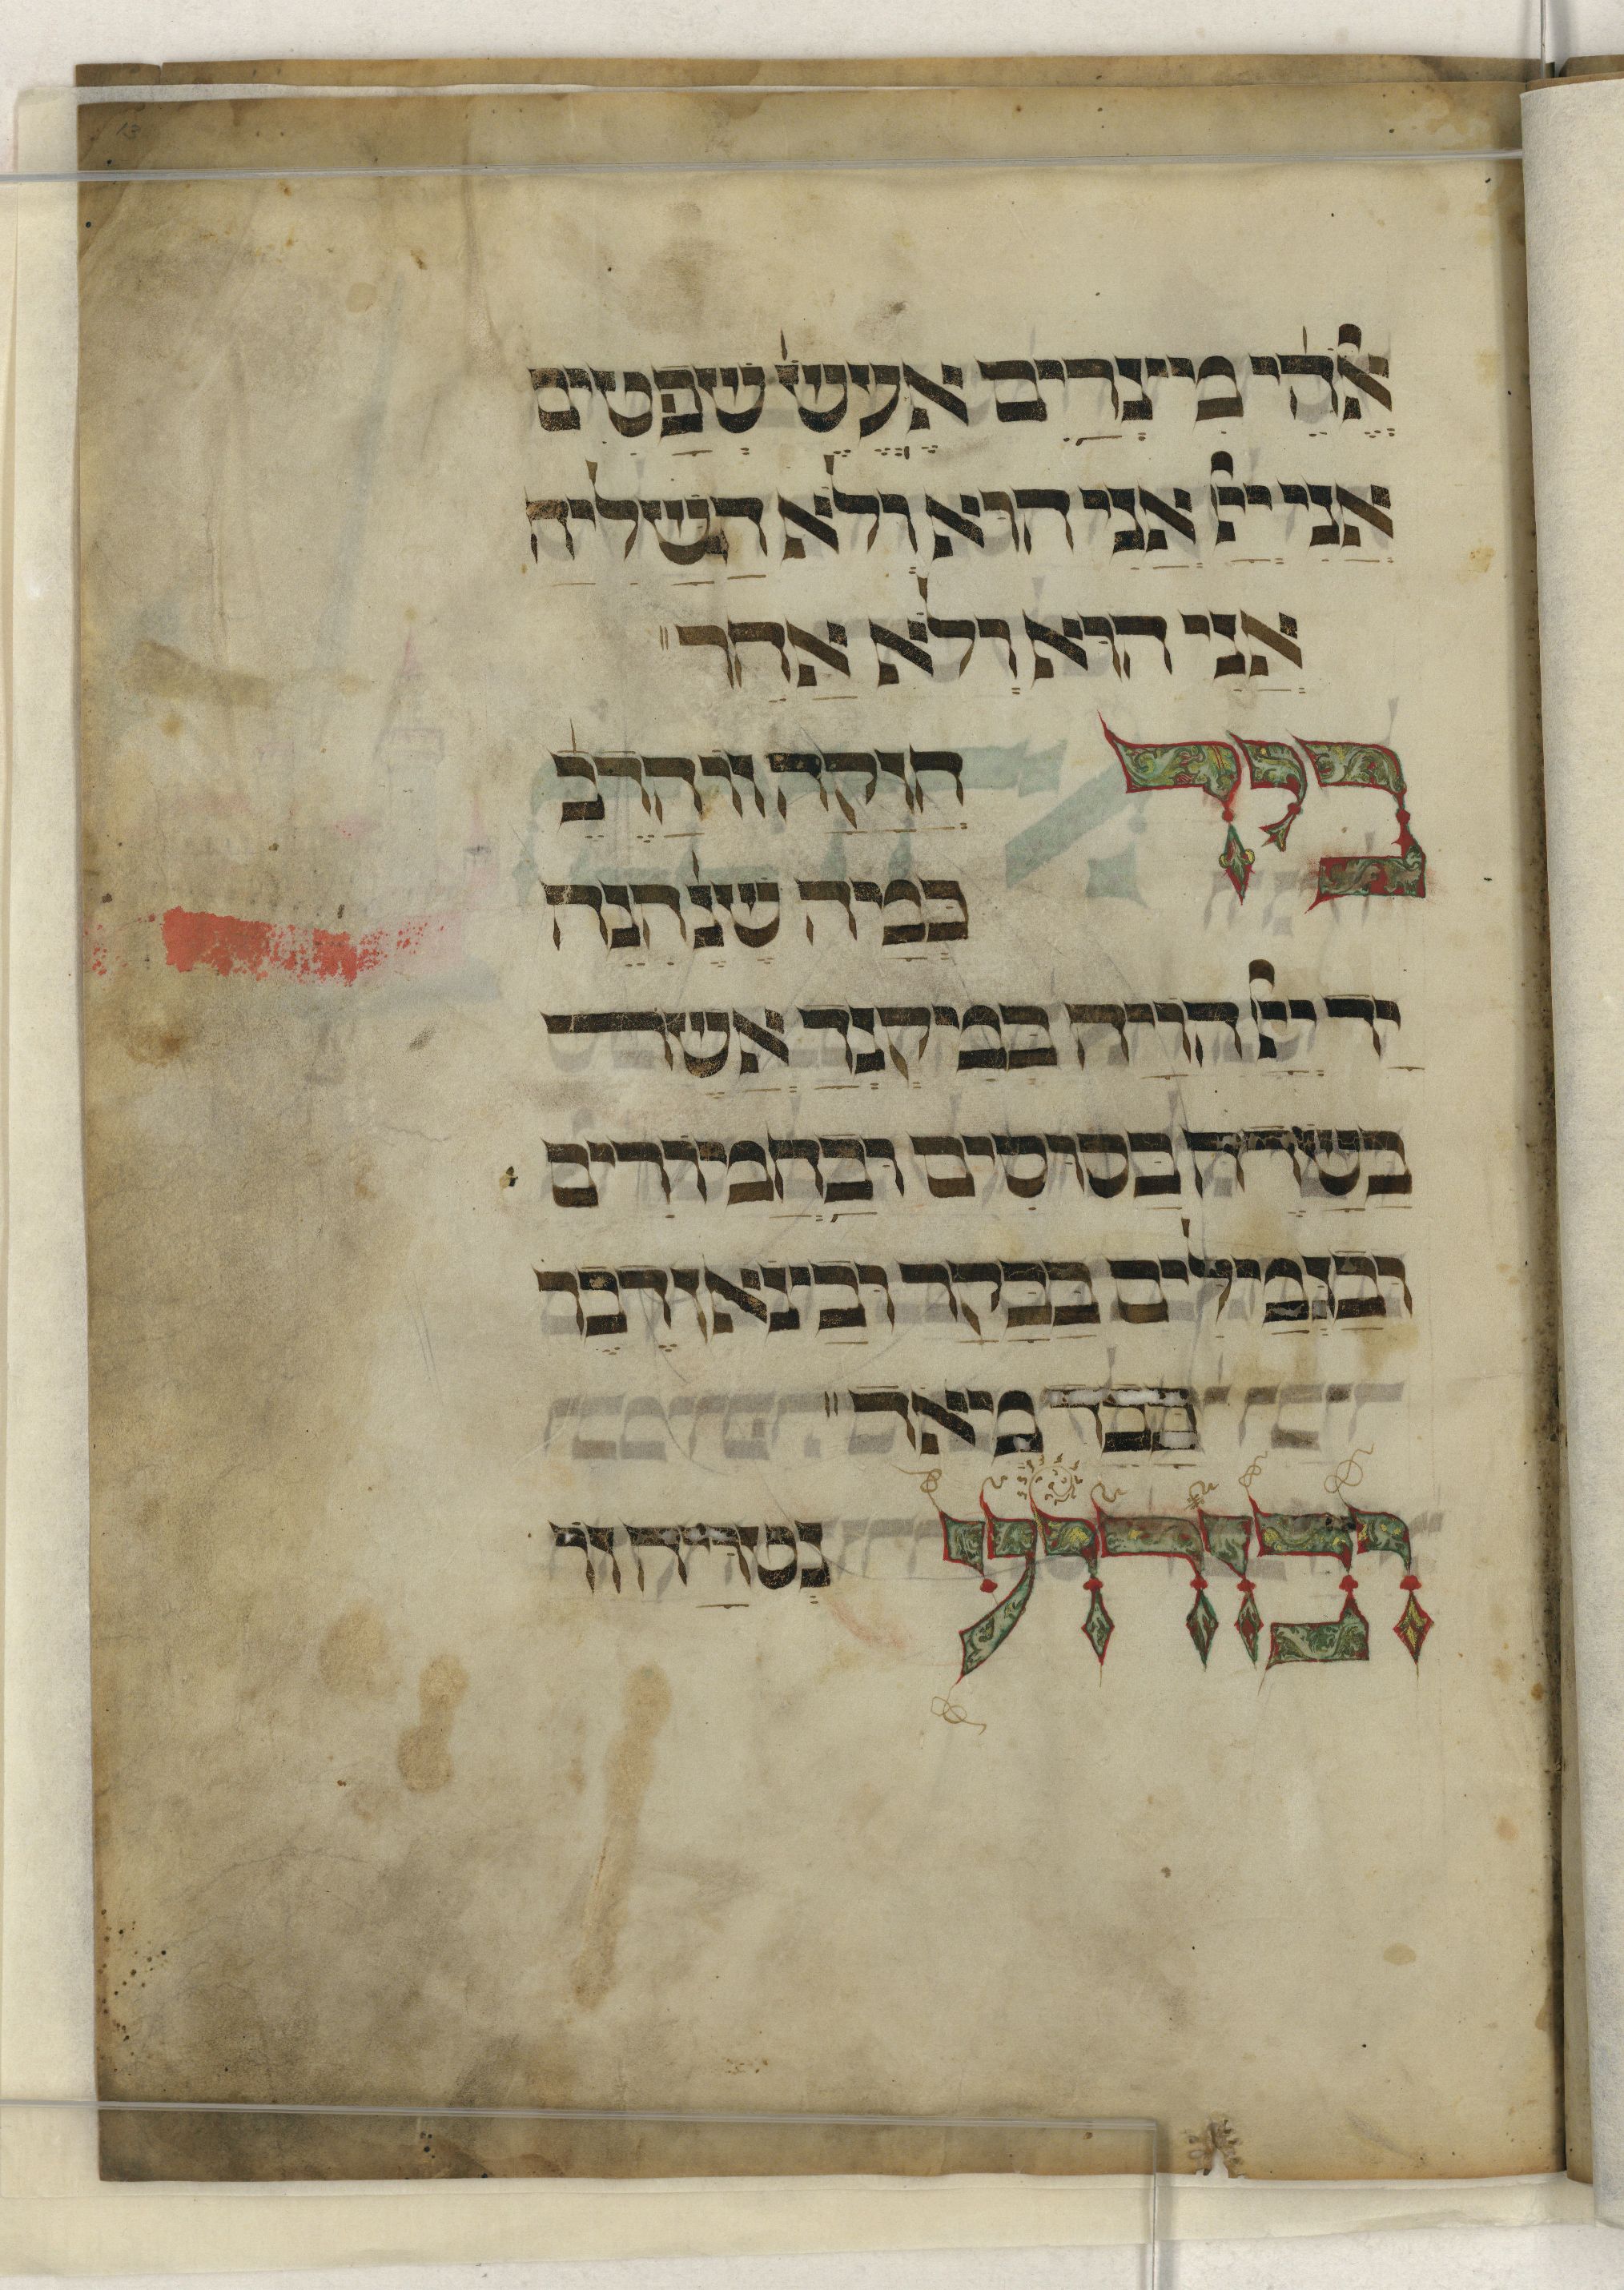 אלהי מצרים אעש' שפטים
אני יי אני הוא ולא השליח
אני הוא ולא אחר״
ביד חזקה זו הדב'
כמה שנ' הנה
יד יי הויה במקנך אשר
בשדה בסוסים ובחמורים
ובגמלים בבקר ובצאן דבר
כבד מאד״
ובזרוע נטויה זו